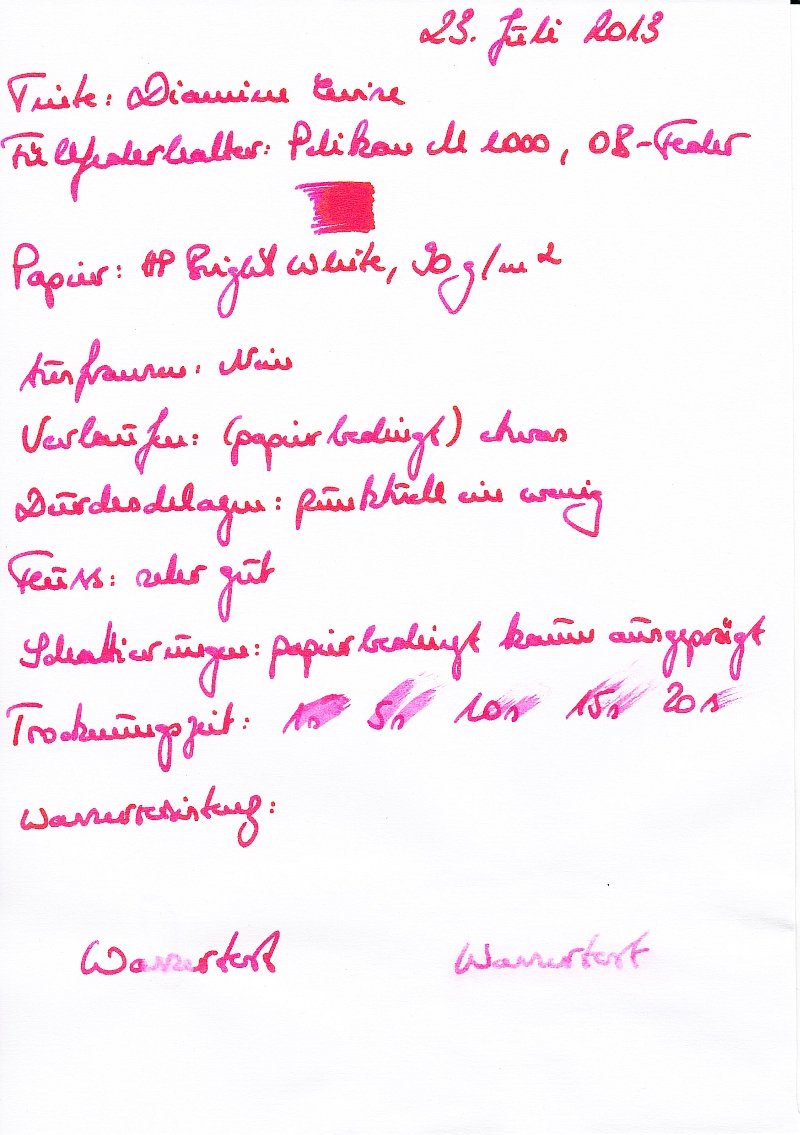 23. Juli 2013
Tinte: Diamine Cerise
Füllfederhalter: Pelikan M 1000, OB-Feder
Papier: HP Bright White, 90 g/m²
Ausfransen: Nein
Verlaufen: (papierbedingt) etwas
Durchschlagen: punktuell ein wenig
Fluss: sehr gut
Schattierungen: papierbedingt kaum ausgeprägt
Trocknungszeit: 1s 5s 10s 15s 20s
Wasserresistenz:
Wassertest Wassertest